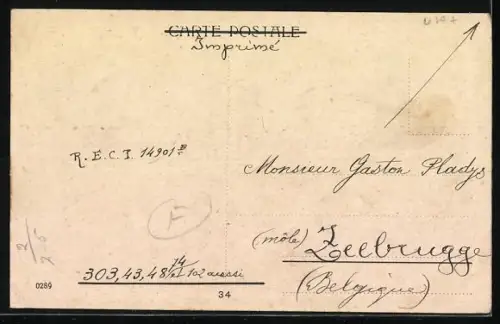 CARTE POSTALE
Imprimé
R.E.C.I. 14901
Monsieur Gaston Pladys
(môle) Zeebrugge
(Belgique)
F
303,43,48 102 aussi
0289
34